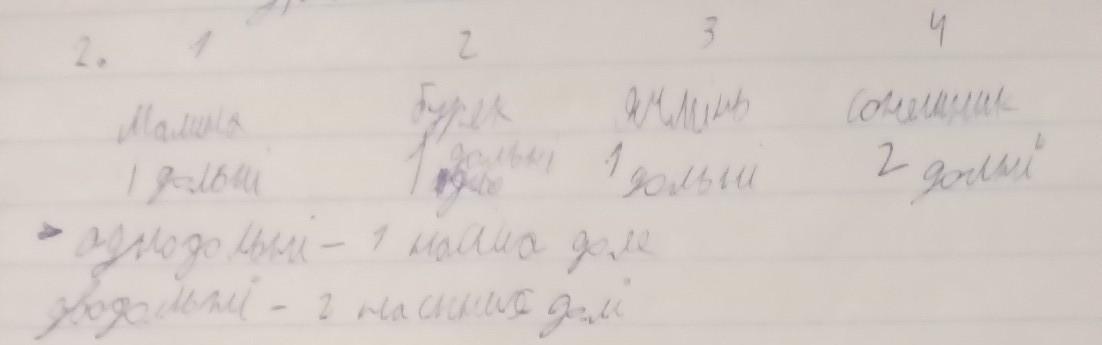 2. 1 2 3 4
Малина Буряк Ячмінь Соняшник
1 дольні 1 дольні 1 дольні 2 дольні
однодольні – 1 доля
дводольні – 2 долі